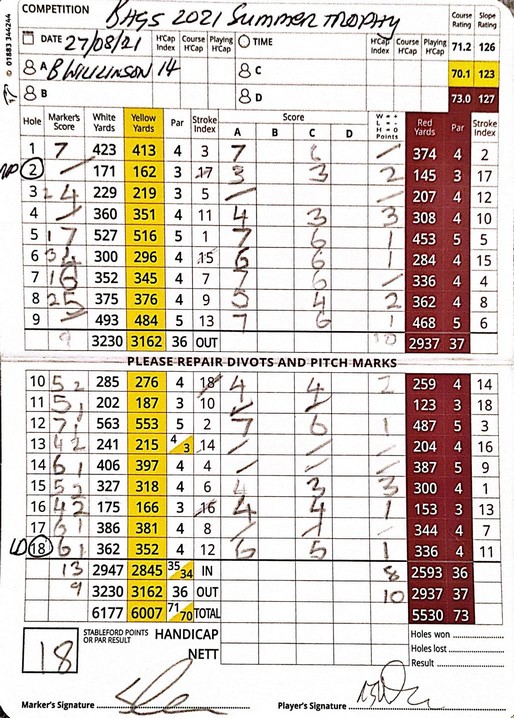 © 01883 344244
COMPETITION BAGS 2021 SUMMER TROPHY
Course Rating Slope Rating
DATE 27/08/21 H'Cap Index Course H'Cap Playing H'Cap TIME H'Cap Index Course H'Cap Playing H'Cap 71.2 126
A B WILLINSON 14 C 70.1 123
B D 73.0 127
Hole Marker's Score White Yards Yellow Yards Par Stroke Index Score A B C D W = + L = - H = 0 Points Red Yards Par Stroke Index
1 7 423 413 4 3 7 6 / 374 4 2
NP 2 / 171 162 3 17 3 3 2 145 3 17
3 2 4 229 219 3 5 / / 207 4 12
4 / 360 351 4 11 4 3 3 308 4 10
5 17 527 516 5 1 7 6 1 453 5 5
6 300 296 4 15 6 6 1 284 4 15
7 352 345 4 7 7 6 / 336 4 4
8 25 375 376 4 9 5 4 2 362 4 8
9 / 493 484 5 13 7 6 1 468 5 6
9 3230 3162 36 OUT 10 2937 37
PLEASE REPAIR DIVOTS AND PITCH MARKS
10 5 2 285 276 4 18 4 4 2 259 4 14
11 5 1 202 187 3 10 123 3 18
12 7 1 563 553 5 2 7 6 1 487 5 3
13 4 2 241 215 4 3 14 / / / 204 4 16
14 6 1 406 397 4 4 / / / 387 5 9
15 5 2 327 318 4 6 4 3 3 300 4 1
16 4 2 175 166 3 16 4 4 1 153 3 13
17 6 1 386 381 4 8 / / 344 4 7
LD 18 6 1 362 352 4 12 6 5 1 336 4 11
13 2947 2845 35 34 IN 8 2593 36
9 3230 3162 36 OUT 10 2937 37
6177 6007 71 70 TOTAL 5530 73
18 STABLEFORD POINTS OR PAR RESULT HANDICAP Holes won
NETT Holes lost
Result
Marker's Signature Player's Signature